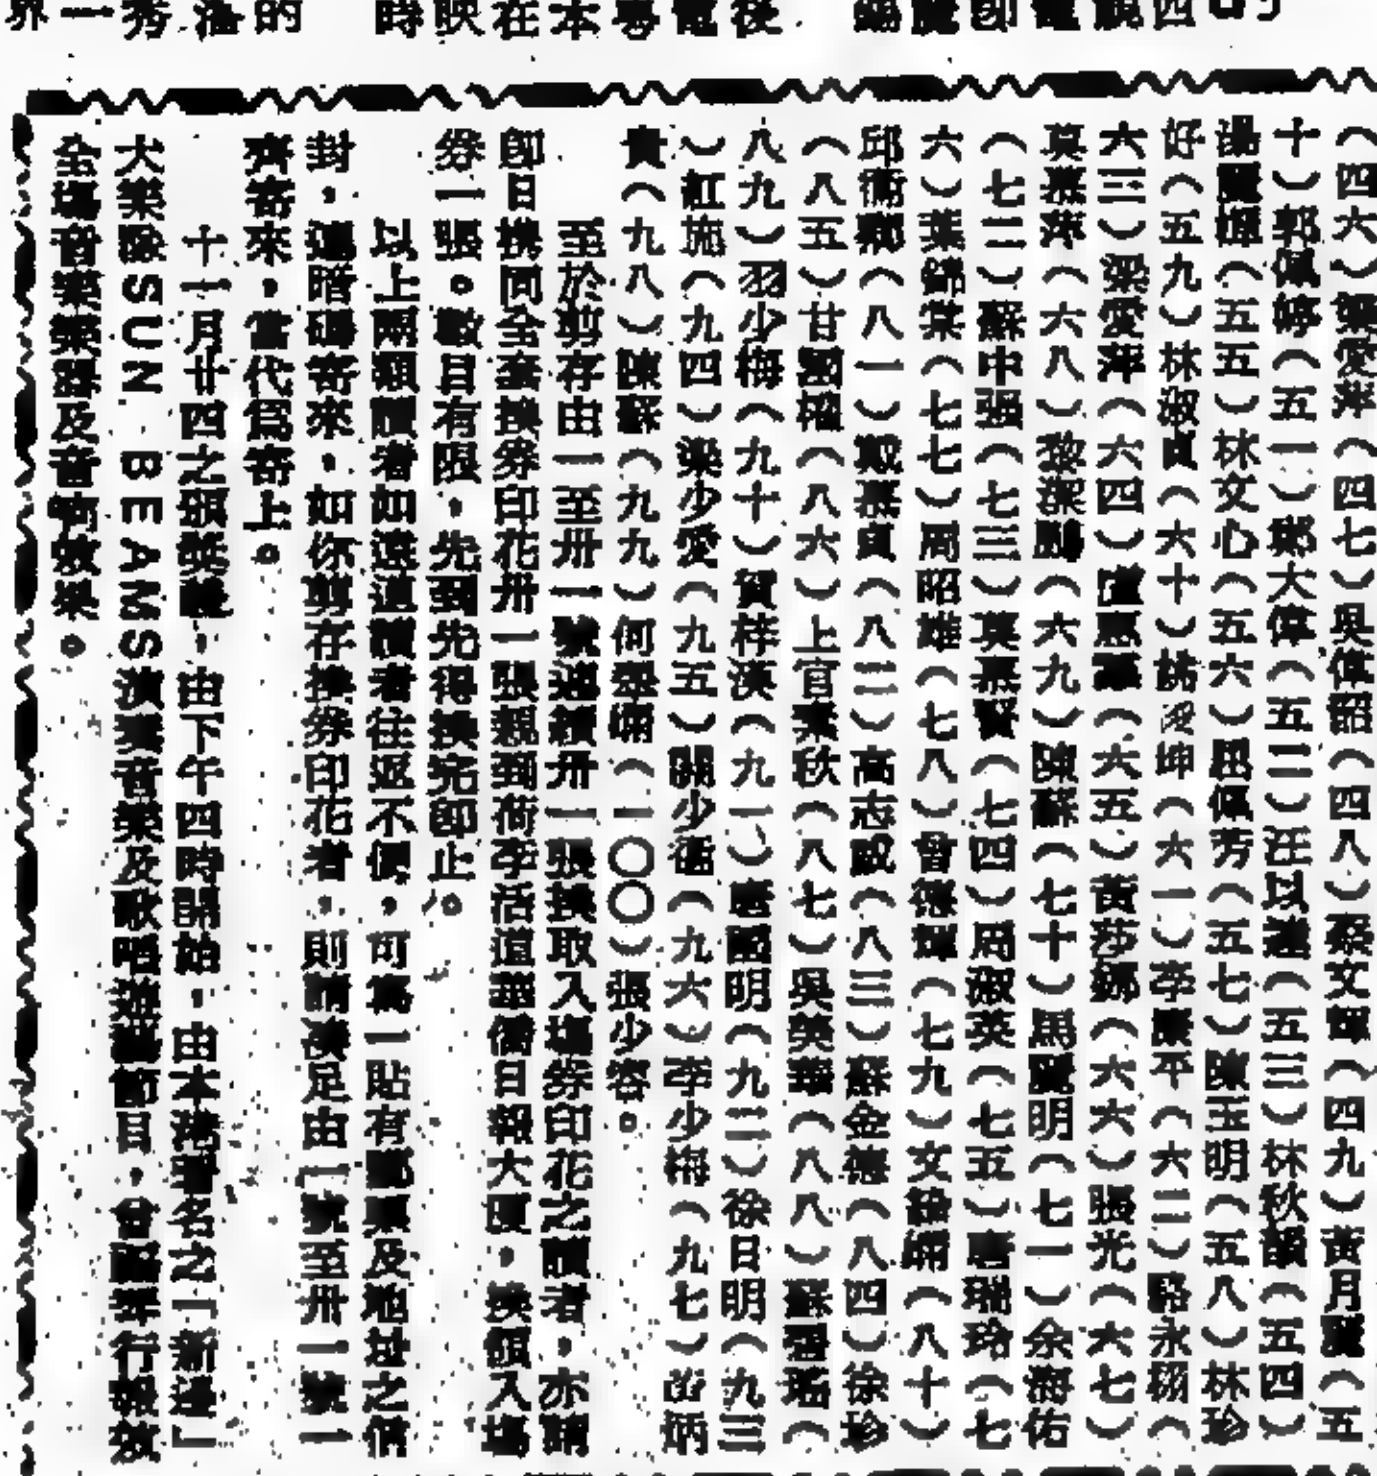 （四六）梁愛萍（四七）吳偉韶（四八）蔡文輝（四九）黃月麗（五
十）郭佩婷（五一）鄭大偉（五二）汪以進（五三）林秋韻（五四）
湯麗嫦（五五）林文心（五六）屈佩芳（五七）陳玉明（五八）林珍
好（五九）林淑貞（六十）姚 坤（六一）李慶平（六二）駱永栩（
六三）梁愛萍（六四）盧惠 （六五）黃莎娜（六六）張光（六七）
莫慕萍（六八）黎潔鵬（六九）陳蘇（七十）馬麗明（七一）余海佑
（七二）蘇中强（七三）莫慕賢（七四）周淑英（七五）唐瑞玲（七
六）葉錦棠（七七）周昭雄（七八）曾德輝（七九）文錦嫻（八十）
邱衛 （八一）戴慕貞（八二）高志威（八三）蘇金德（八四）徐珍
（八五）甘國權（八六）上官業秋（八七）吳笑華（八八）蘇碧瑤（
八九）羽少梅（九十）賀梓漢（九一）唐國明（九二）徐日明（九三
）紅施（九四）梁少愛（九五）關少 （九六）李少梅（九七） 炳
貴（九八）陳蘇（九九）何翠嫻（一〇〇）張少容。
至於剪存由一至卅一號連續卅一張換取入塲券印花之讀者，亦請
卽日携同全套換券印花卅一張親到荷李活道華僑日報大厦，換領入塲
券一張。數目有限，先到先得換完卽止。
以上兩類讀者如遠道讀者往返不便，可寫一貼有郵票及地址之信
封，連暗碼寄來，如你剪存換券印花者，則請湊足由一號至卅一號一
齊寄來，當代爲寄上。
十一月廿四之頒獎禮，由下午四時開始，由本港著名之「新邊」
大樂隊ＳＵＮ ＢＥＡＭＳ演奏音樂及歌唱遊戲節目，曾福琴行報效
全塲音樂樂器及音响效果。